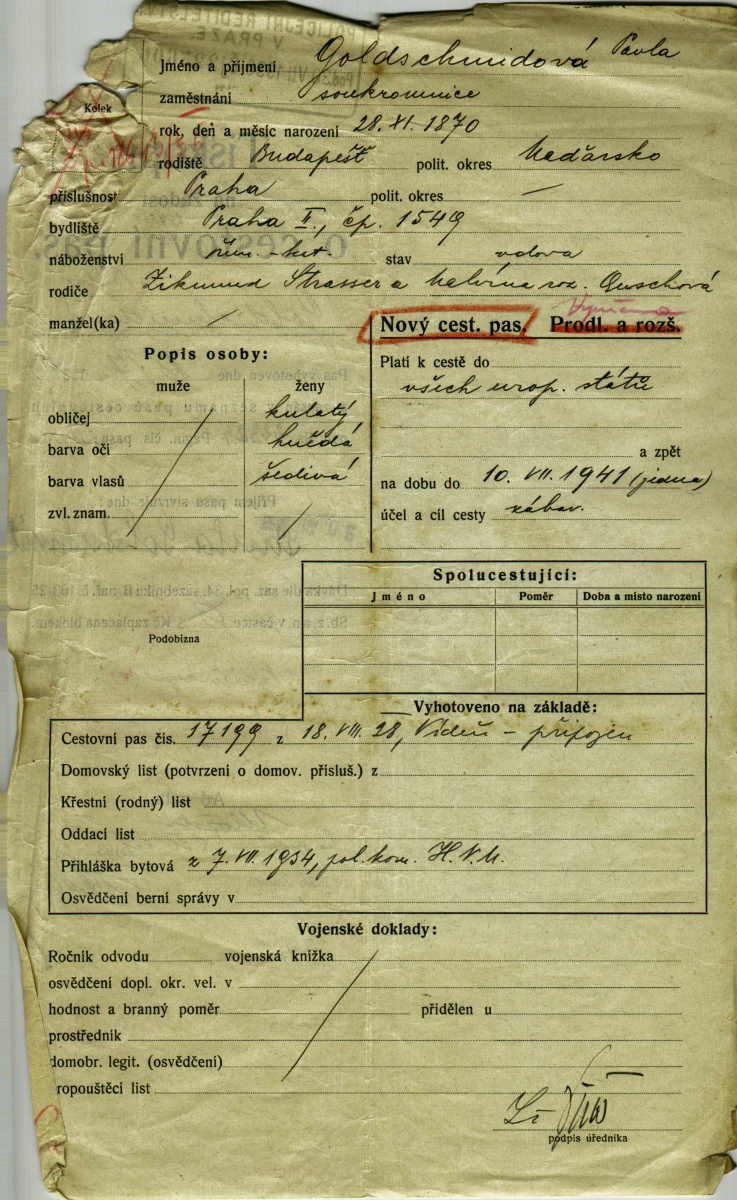 Jméno a příjmení Goldschmidová Pavla
Kolek
zaměstnání soukromnice
rok, den a měsíc narození 28. XI. 1870
rodiště Budapešť polit. okres Maďarsko
příslušnost Praha polit. okres —
bydliště Praha II., čp. 1549
náboženství řím.-kat. stav vdova
rodiče Zikmund Strasser a Melvína roz. Quschová
manžel(ka) /
Nový cest. pas. Prodl. a rozš.
Popis osoby:
muže ženy
obličej kulatý
barva očí hnědá
barva vlasů šedivá
zvl. znam. /
Platí k cestě do
všech urop. států
a zpět
na dobu do 10. VII. 1941 (jedna)
účel a cíl cesty zábav.
Podobizna
Spolucestující:
Jméno Poměr Doba a místo narození
Vyhotoveno na základě:
Cestovní pas čís. 17199 z 18. VIII. 28, Vídeň – připojen
Domovský list (potvrzení o domov. přísluš.) z
Křestní (rodný) list
Oddací list
Přihláška bytová z 7. VII. 1934, pol. kom. H.V.M.
Osvědčení berní správy v
Vojenské doklady:
Ročník odvodu vojenská knížka
osvědčení dopl. okr. vel. v
hodnost a branný poměr přidělen u
prostředník
domobr. legit. (osvědčení)
ropouštěcí list
podpis úředníka